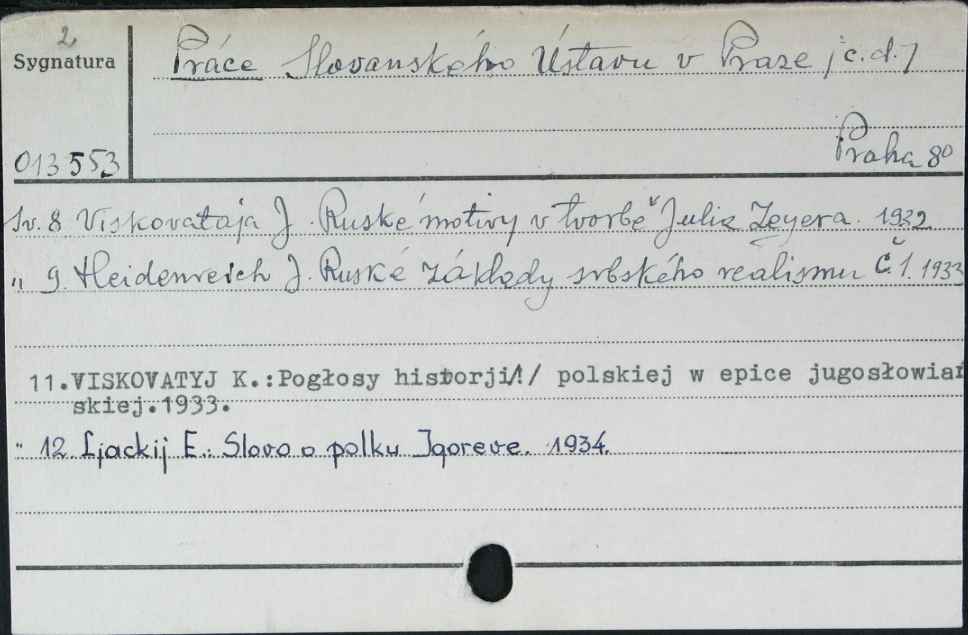 2
Sygnatura
Práce Slovanského Ústavu v Praze /c.d./
Praha 8°
013553
Sv. 8 Viskovataja J. Ruské motivy v tvorbě Julia Zeyera. 1932
" 9. Heidenreich J. Ruské základy srbského realismu Č.1. 1933
11.VISKOVATYJ K.:Pogłosy historji/1/ polskiej w epice jugosłowiań
skiej.1933.
" 12. Ljackij E.: Slovo o polku Igoreve. 1934.